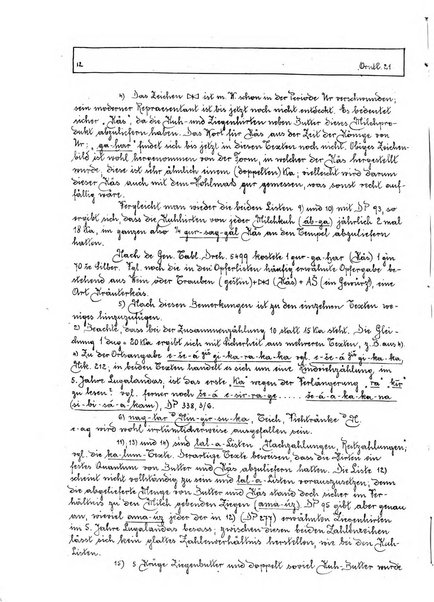 12 Orient. 21
4) Das Zeichen [DKI] ist m. W. schon in der Periode Ur verschwunden;
sein moderner Repraesentant ist bis jetzt noch nicht entdeckt. Es bedeutet
sicher „Käs", da die Kuh- und Ziegenhirten neben Butter dieses Milchpro-
dukt abzuliefern haben. Das Wort für Käs aus der Zeit der Könige von
Ur: „ga-har" findet sich bis jetzt in diesen Texten noch nicht. Obiges Zeichen-
bild ist wohl hergenommen von der Form, in welcher der Käs hergestellt
wurde; diese ist sehr ähnlich einem (doppelten) Ka; vielleicht wird darum
dieser Käs auch mit dem Hohlmaß gur gemessen, was sonst recht auf-
fällig wäre.
Vergleicht man wieder die beiden Listen 9) und 10) mit DP 93, so
ergibt sich, dass die Kuhhirten von jeder Milchkuh (áb-ga) jährlich 2 mal
18 Ka, im ganzen also 1/4 gur-sag-gál Käs an den Tempel abzuliefern
hatten.
Nach de Gen. Tabl. Dreh. 5499 kostete 1 gur ga-har (Käs) 1 gin
70 še Silber. Vgl. noch die in den Opferlisten häufig erwähnte Opfergabe be-
stehend aus Wein oder Trauben (geštin) + (Käs) + AŠ (ein Gewürz), eine
Art Kräuterkäs.
5) Nach diesen Bemerkungen ist zu den einzelnen Texten we-
niges hinzuzufügen.
2) Beachte, dass bei der Zusammenzählung 10 statt 15 Ka steht. Die Glei-
chung 1 dug = 20 Ka ergibt sich mit Sicherheit aus mehreren Texten, z. B. aus 4).
Nik. 212, in beiden Texten handelt es sich um eine Rindviehzählung im
5. Jahre Lugalandas, ist das erste „ka" wegen der Verlängerung „ra" „kir"
zu lesen? vgl. ferner noch
(si-bi-sá-a-kam), DP 338, 5/6.
6) nag-kar Nin-gír-su-ka, Teich, Viehtränke
e-ag wird wohl irrtümlicherweise ausgefallen sein.
11), 13) und 10) sind lal-a-Listen, Nachzahlungen, Restzahlungen;
vgl. die ka-lum-Texte. Derartige Texte beweisen, dass die Hirten ein
festes Quantum von Butter und Käs abzuliefern hatten. Die Liste 12)
scheint nicht vollständig zu sein und lal-a-Listen vorauszusetzen; denn
die abgelieferte Menge von Butter und Käs stand doch sicher im Ver-
hältnis zu den Milch gebenden Ziegen (ama-ùz). DP 95 gibt aber genau
an, wieviel ama-ùz jeder der in 12) (DP 277) erwähnten Ziegenhirten
im 5. Jahre Lugalandas besass; zwischen diesen beiden Zahlenreihen
lässt sich kein glattes Zahlenverhältnis herstellen, wie bei den Kuh-
Listen.
15) 5 Krüge Ziegenbutter und doppelt soviel Kuh-Butter wurde